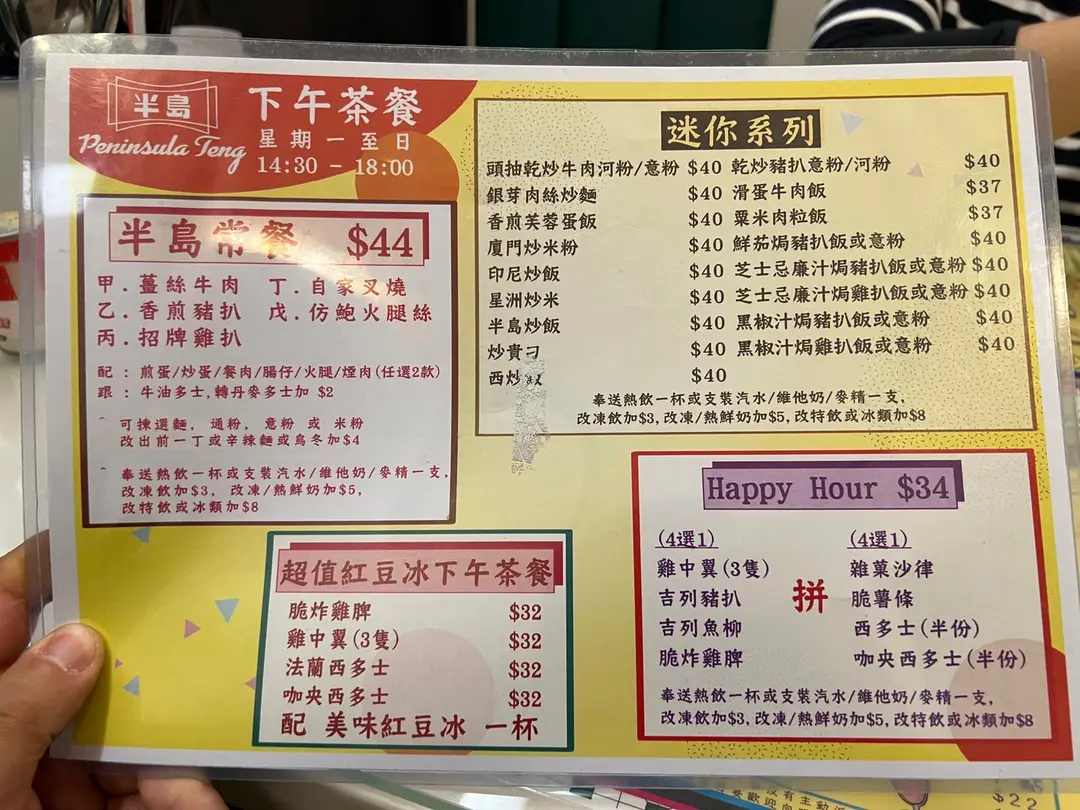 半島
Peninsula Teng
下午茶餐
星期一至日
14:30 - 18:00
半島常餐 $44
甲.薑絲牛肉 丁.自家叉燒
乙.香煎豬扒 戊.仿鮑火腿絲
丙.招牌雞扒
配 : 煎蛋/炒蛋/餐肉/腸仔/火腿/煙肉(任選2款)
跟 : 牛油多士,轉丹麥多士加 $2
可揀選麵, 通粉, 意粉 或 米粉
改出前一丁或辛辣麵或烏冬加$4
奉送熱飲一杯或支裝汽水/維他奶/麥精一支,
改凍飲加$3, 改凍/熱鮮奶加$5,
改特飲或冰類加$8
迷你系列
頭抽乾炒牛肉河粉/意粉 $40 乾炒豬扒意粉/河粉 $40
銀芽肉絲炒麵 $40 滑蛋牛肉飯 $37
香煎芙蓉蛋飯 $40 粟米肉粒飯 $37
廈門炒米粉 $40 鮮茄焗豬扒飯或意粉 $40
印尼炒飯 $40 芝士忌廉汁焗豬扒飯或意粉 $40
星洲炒米 $40 芝士忌廉汁焗雞扒飯或意粉 $40
半島炒飯 $40 黑椒汁焗豬扒飯或意粉 $40
炒貴刁 $40 黑椒汁焗雞扒飯或意粉 $40
西炒 $40
奉送熱飲一杯或支裝汽水/維他奶/麥精一支,
改凍飲加$3,改凍/熱鮮奶加$5,改特飲或冰類加$8
超值紅豆冰下午茶餐
脆炸雞脾 $32
雞中翼(3隻) $32
法蘭西多士 $32
咖央西多士 $32
配 美味紅豆冰 一杯
Happy Hour $34
(4選1) (4選1)
雞中翼(3隻) 雜菓沙律
吉列豬扒 脆薯條
拼
吉列魚柳 西多士(半份)
脆炸雞脾 咖央西多士(半份)
奉送熱飲一杯或支裝汽水/維他奶/麥精一支,
改凍飲加$3,改凍/熱鮮奶加$5,改特飲或冰類加$8
沒有主動
$22